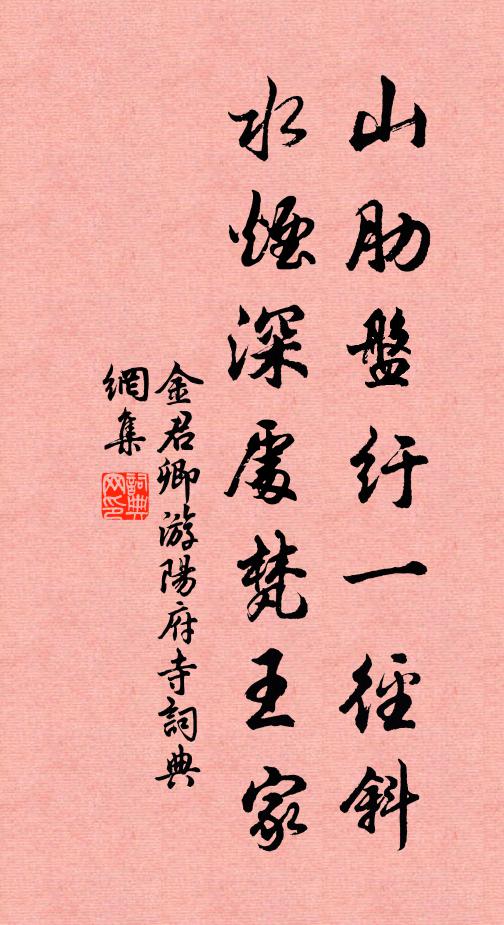 山肋盤紆一徑斜
水煙深處梵王家
金君卿游陽府寺詞典
網集
詞典網印